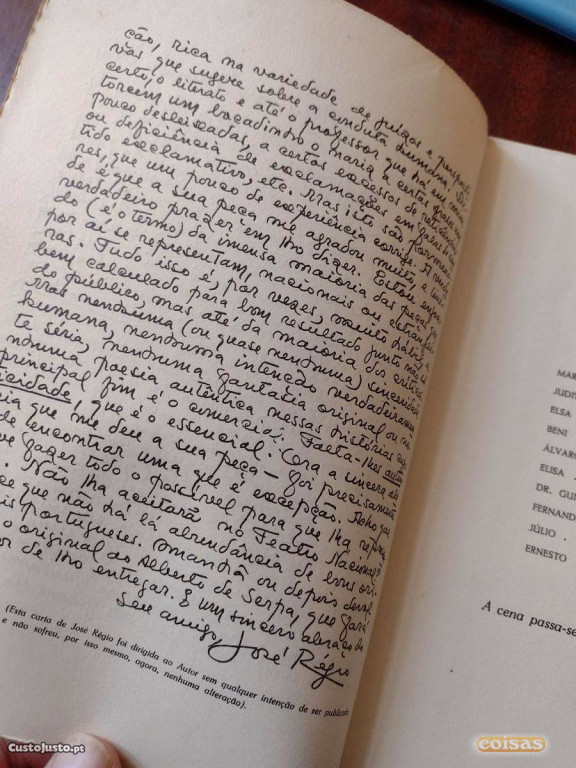 ção, rica na variedade de juízos e perspecti-
vas que sugere sobre a conduta humana. De
certo, o literato e até o professor que há em mim
torcem um bocadinho o nariz a certas frases um
pouco desleixadas, a certos excessos de reticências
ou deficiência de exclamações em falas de sen-
tido exclamativo, etc. Mas isto são pormeno-
res, que um pouco de experiência corrige. A verda-
de é que a sua peça me agradou muito, e tenho
verdadeiro prazer em lho dizer. Estou
do (é o termo) da imensa maioria das peças que
por aí se representam, nacionais ou estrangei-
ras. Tudo isso é, por vezes, muito hábil e
bem calculado para bom resultado junto não só
do público, mas até da maioria dos críticos.
Mas nenhuma (ou quase nenhuma) sinceridade
humana, nenhuma intenção verdadeiramen-
te séria, nenhuma fantasia original ou ne-
nhuma poesia autêntica nessas histórias cujo
principal fim é o comércio. Falta-lhes auten-
ticidade, que é o essencial. Ora a sincera ale-
ria que me deu a sua peça — foi precisamente
de encontrar uma que é excepção. Acho que
fazer todo o possível para que lha repre-
. Não lha aceitarão no Teatro Nacional?
ce que não há lá abundância de bons ori-
is portugueses. Amanhã ou depois devol-
o original ao Alberto de Serpa, que fará
or de lho entregar. E um sincero abraço do
seu amigo
José Régio
(Esta carta de José Régio foi dirigida ao Autor sem qualquer intenção de ser publicada
e não sofreu, por isso mesmo, agora, nenhuma alteração).
MAR
JUDIT
ELSA
BENI
ÁLVARO
ELISA .
DR. GUI
FERNAND
JÚLIO .
ERNESTO
A cena passa-se
CustoJusto.pt
coisas